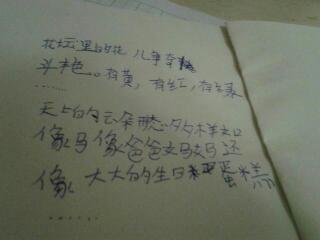 花坛里的花儿争
斗艳。有黄,有红,有绿
......
天上的云朵形态多样
像马像爸爸妈妈还
像大大的生日蛋糕
......